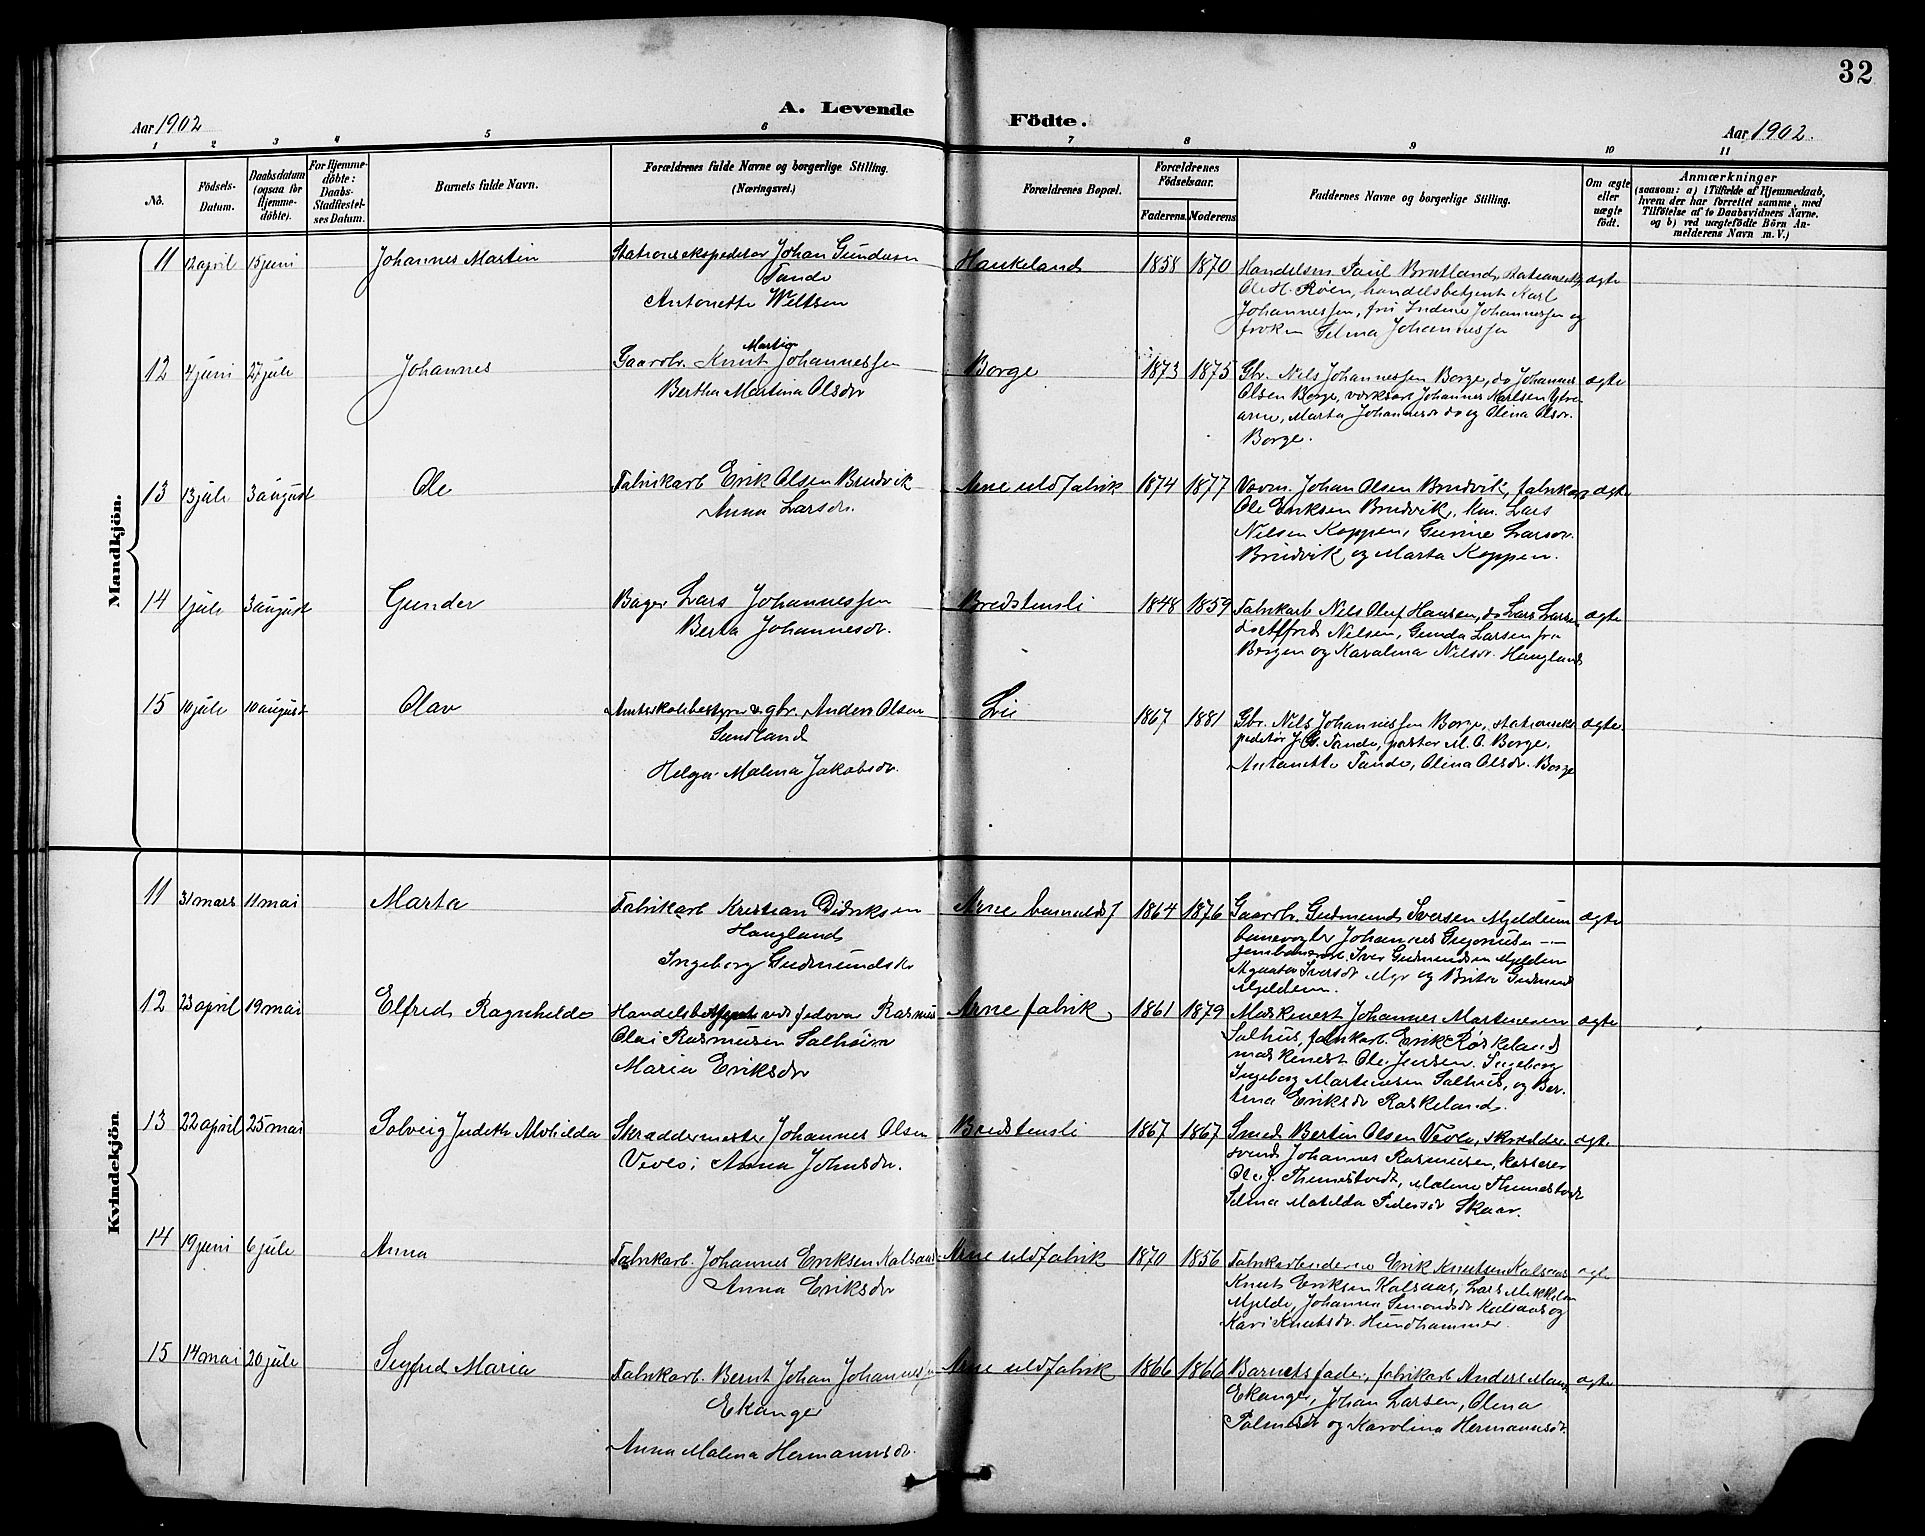 32
A. Levende Födte.
Aar 1902
Aar 1902.
1 2 3 4 5 6 7 8 9 10 11
No.
Födsels-Datum.
Daabsdatum (ogsaa for Hjemme-döbte).
For Hjemme-döbte: Daabs-Stadfæstel-ses Datum.
Barnets fulde Navn.
Forældrenes fulde Navne og borgerlige Stilling. (Næringsvei.)
Forældrenes Bopæl.
Forældrenes Födselsaar.
Faderens. Moderens.
Faddernes Navne og borgerlige Stilling.
Om ægte eller uægte födt.
Anmærkninger
(saasom: a) i Tilfælde af Hjemmedaab, hvem der har forrettet samme, med Tilföielse af to Daabsvidners Navne. og b) ved uægtefödte Börn An-melderens Navn m. V.)
Mandkjön.
11 12 april 15 juni Johannes Martin Stationsekspeditør Johan Gundersen
Tande
Antonette Weltsen
Haukeland 1858 1870 Handelsm. Paul Bratland, stationseksp.
Ole H. Røen, handelsbetjent Karl
Johannessen, fru Indine Johannessen og
frøken Selma Johannessen
ægte
12 4 juni 27 juli Johannes Gaardbr. Knut Martin Johannessen
Bertha Martina Olsdr
Borge 1873 1875 Gbr. Nils Johannessen Borge, do Johannes
Olsen Borge, verksarb Johannes Karlsen Ytre
arne, Marta Johannesdr do og Olina Olsdr.
Borge.
ægte
13 13 juli 3 august Ole Fabrikarb Erik Olsen Brudvik
Anna Larsdr.
Arne uldfabrik 1874 1877 Vævm. Johan Olsen Brudvik, fabrikarb
Ole Eriksen Brudvik, km. Lars
Nilsen Koppen, Gurine Larsdr.
Brudvik og Marta Koppen.
ægte
14 1 juli 3 august Gunder Bager Lars Johannessen
Berta Johannesdr.
Bredstensli 1848 1859 Fabrikarb Nils Oluf Hansen, do Lars Larsen
do Alfred Nilsen, Gunda Larsen fra
Bergen og Karolina Nilsdr. Haugland
ægte
15 10 juli 10 august Olav Amtsskolebestyrer & gbr. Anders Olsen
Sundland
Helga Malena Jakobsdr.
Lie 1867 1881 Gbr. Nils Johannessen Borge, stationseks
peditør J. G. Tande, pastor M. O. Borge,
Antonette Tande, Olina Olsdr. Borge
ægte
Kvindekjön
11 31 mars 11 mai Marta Fabrikarb Kristian Didriksen
Haugland
Ingeborg Gudmundsdr
Arne bomuldsf 1864 1876 Gaardbr. Gudmund Iversen Mjeldheim
banevogter Johannes
Iver Gudmundsen Mjeldem
Iversdr og Brita Gudmund
Mjeldem.
ægte
12 23 april 19 mai Elfred Ragnhilda Handelsbetjent Rasmus
Olai Rasmussen Salhus
Maria Eriksdr
Arne fabrik 1861 1879 Maskinest Johannes Martinesen
Salhus, fabrikarb. Erik Røskeland
maskinest Ole Jensen, Ingeborg
Ingeborg Martinesen Salhus, og Ber-
tina Eriksdr Røskeland.
ægte
13 22 april 25 mai Solveig Judith Alvhilda Skræddermester Johannes Olsen
Vevle; Anna Johnsdr.
Bredstensli 1867 1867 Smed Bertin Olsen Vevle, skrædder
svend Johannes Rasmussen, kasserer
Ole J. Thunestvedt, Malene Thunestvedt
Selma Matilda Pedersdr Skaar.
ægte
14 19 juni 6 juli Anna Fabrikarb. Johannes Eriksen Kalsaas
Anna Eriksdr
Arne uldfabrik 1870 1856 Fabrikarbeiderne Erik Knutsen Kalsaas
Knut Eriksen Kalsaas, Lars Mikkelsen
Mjelde, Johanna Simonsdr Kalsaas og
Kari Knutsdr. Hundhammer.
ægte
15 14 mai 20 juli Sigfrid Maria Fabrikarb. Bernt Johan Johannessen
Ekanger
Anna Malena Hermannsdr.
Arne uldfabrik 1866 1866 Barnets fader, fabrikarb Anders Mons
Ekanger, Johan Larsen, Olena
Palmesdr og Karolina Hermannsdr.
ægte